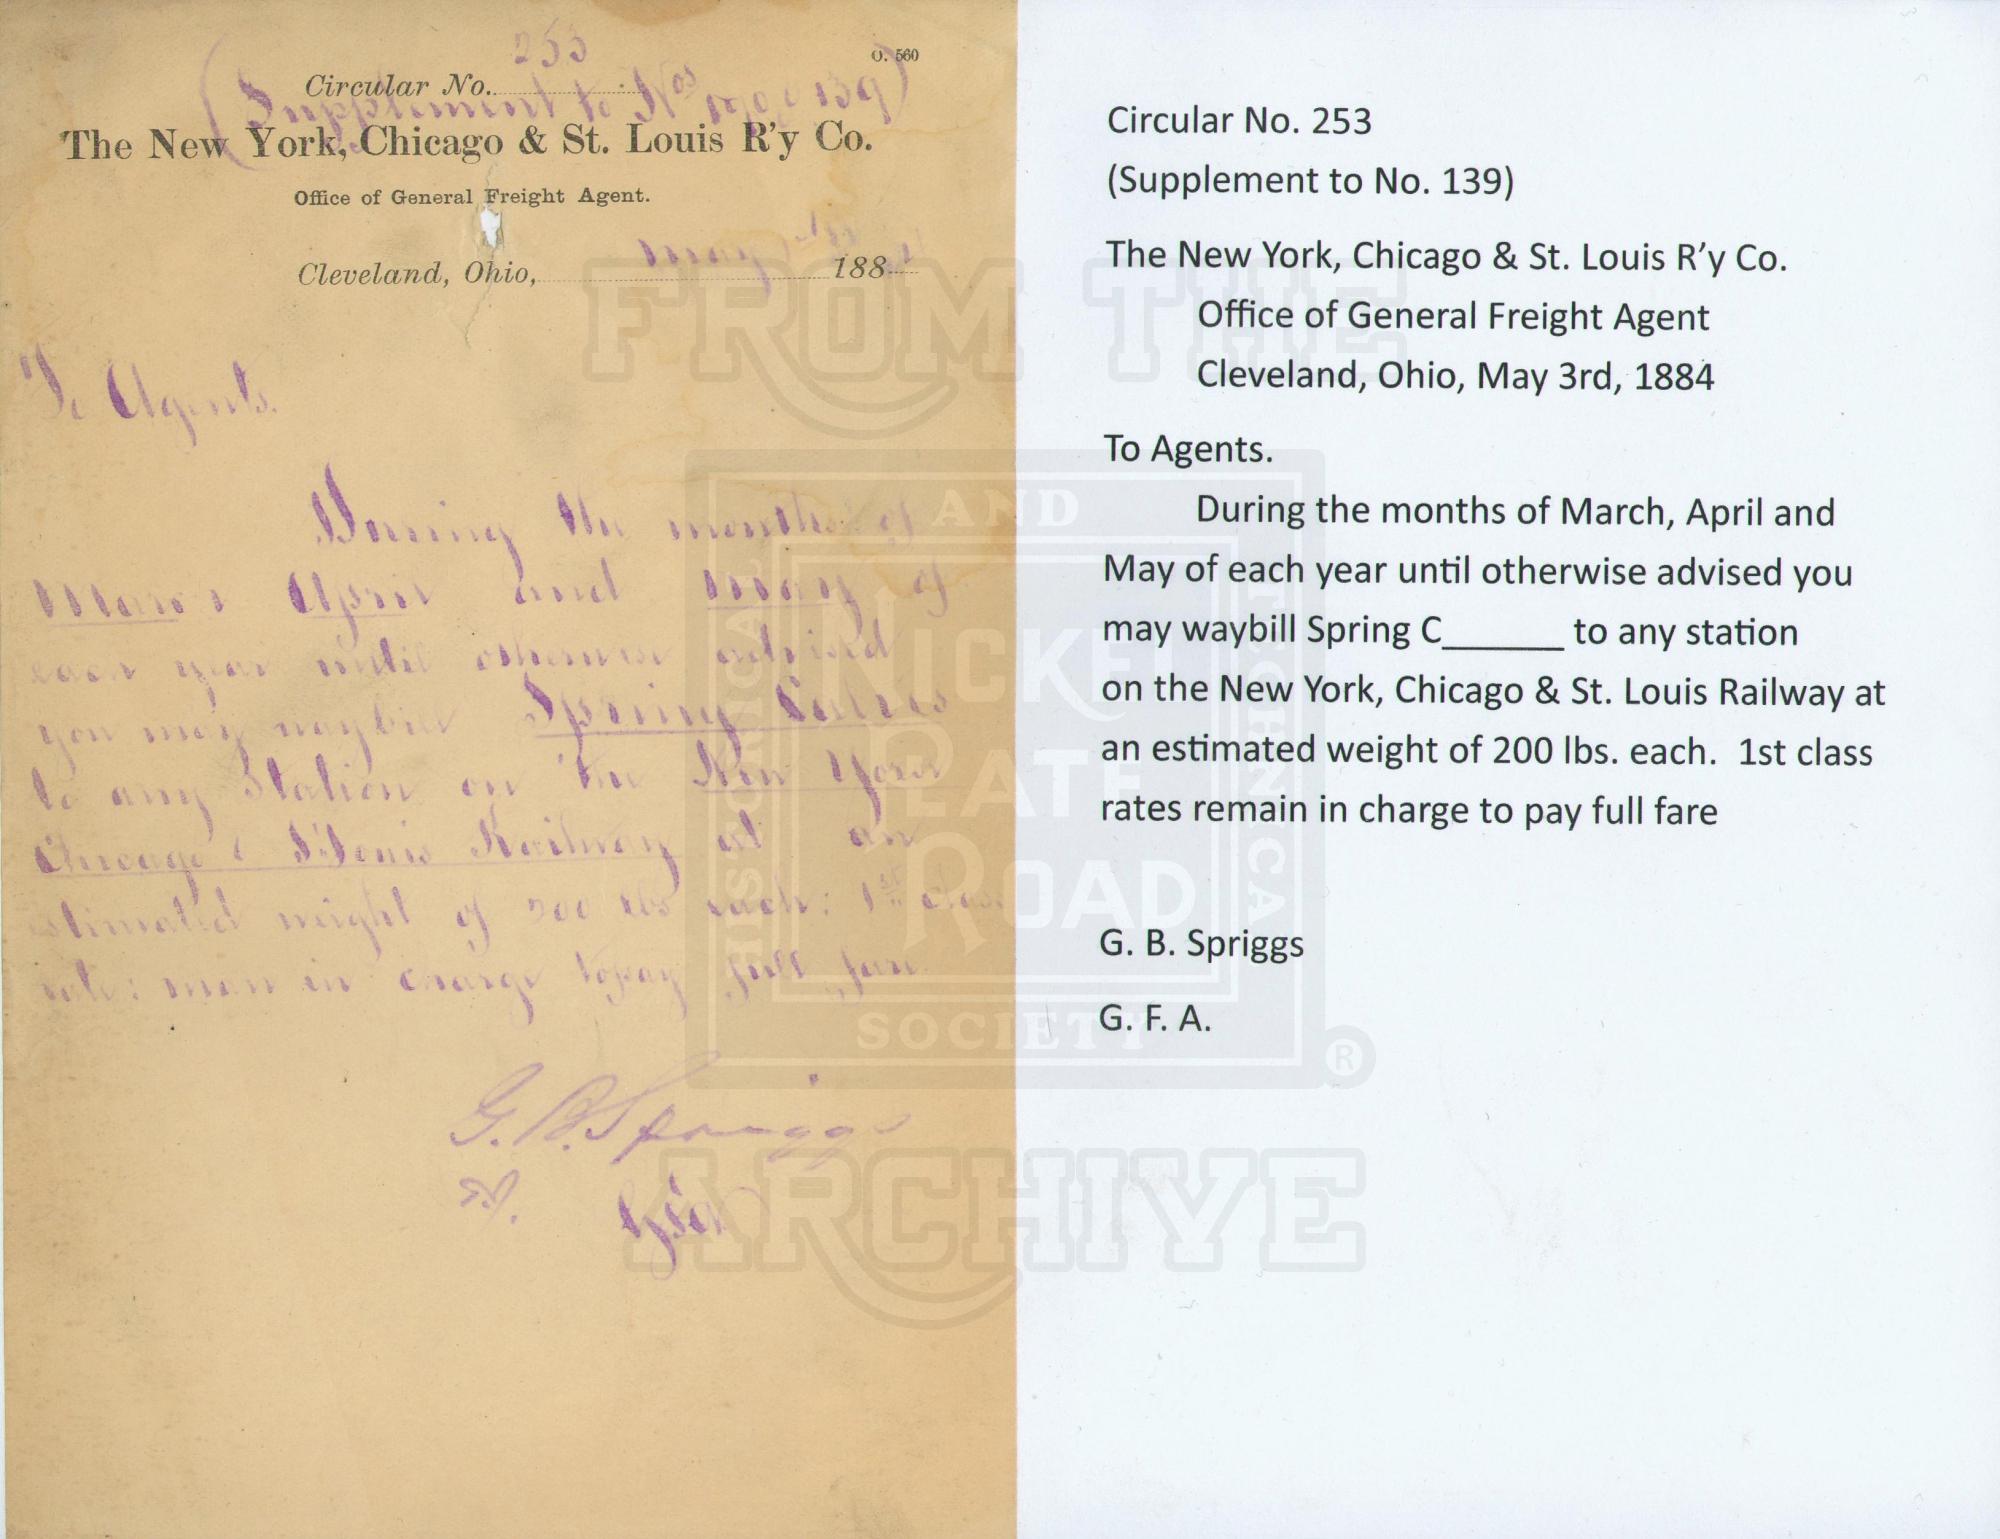 253
O. 560
Circular No.
(Supplement to Nos 139)
The New York, Chicago & St. Louis R'y Co.
Office of General Freight Agent.
Cleveland, Ohio, May 188
To Agents.
During the months of
March April and May of
each year until otherwise advised
you may waybill Spring Calves
to any Station on the New York
Chicago & St Louis Railway at an
estimated weight of 200 lbs each: 1st class
rate: man in charge to pay full fare.
G. B. Spriggs
G.F.A.
Circular No. 253
(Supplement to No. 139)
The New York, Chicago & St. Louis R’y Co.
Office of General Freight Agent
Cleveland, Ohio, May 3rd, 1884
To Agents.
During the months of March, April and
May of each year until otherwise advised you
may waybill Spring C______ to any station
on the New York, Chicago & St. Louis Railway at
an estimated weight of 200 lbs. each. 1st class
rates remain in charge to pay full fare
G. B. Spriggs
G. F. A.
FROM THE
AND
HISTORICAL
NICKEL
PLATE
ROAD
TECHNICAL
SOCIETY
®
ARCHIVE